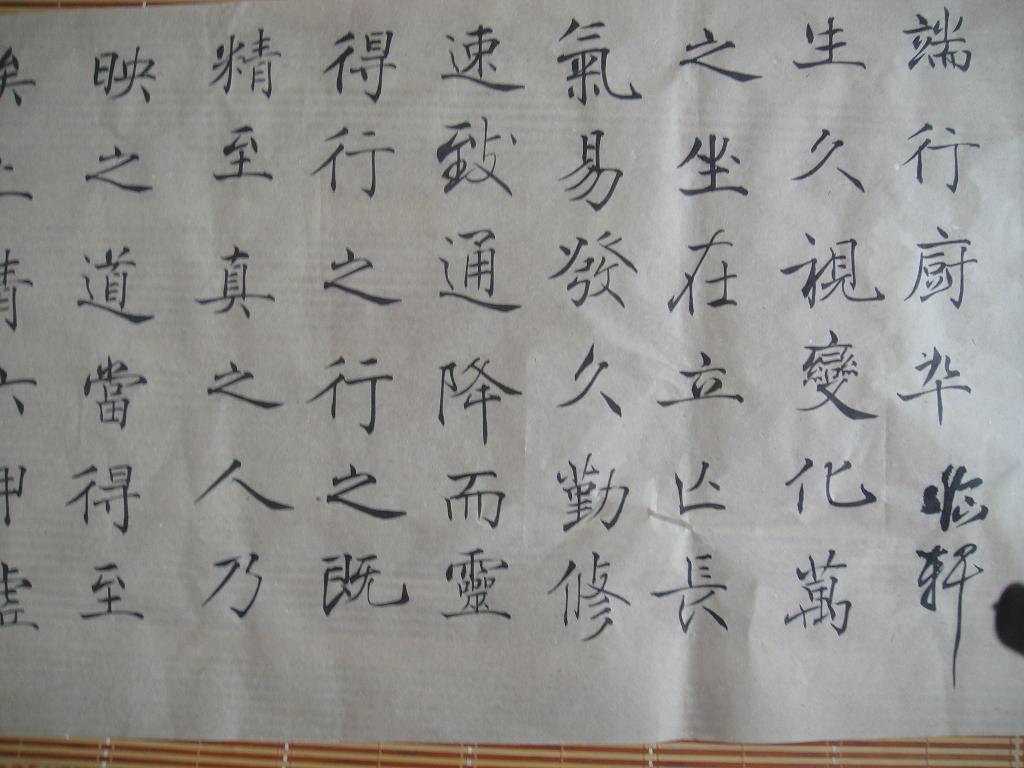 矣上清六甲虛
映之道當得至
精至真之人乃
得行之行之既
速致通降而靈
氣易發久勤修
之坐在立亡長
生久視變化萬
端行廚卒